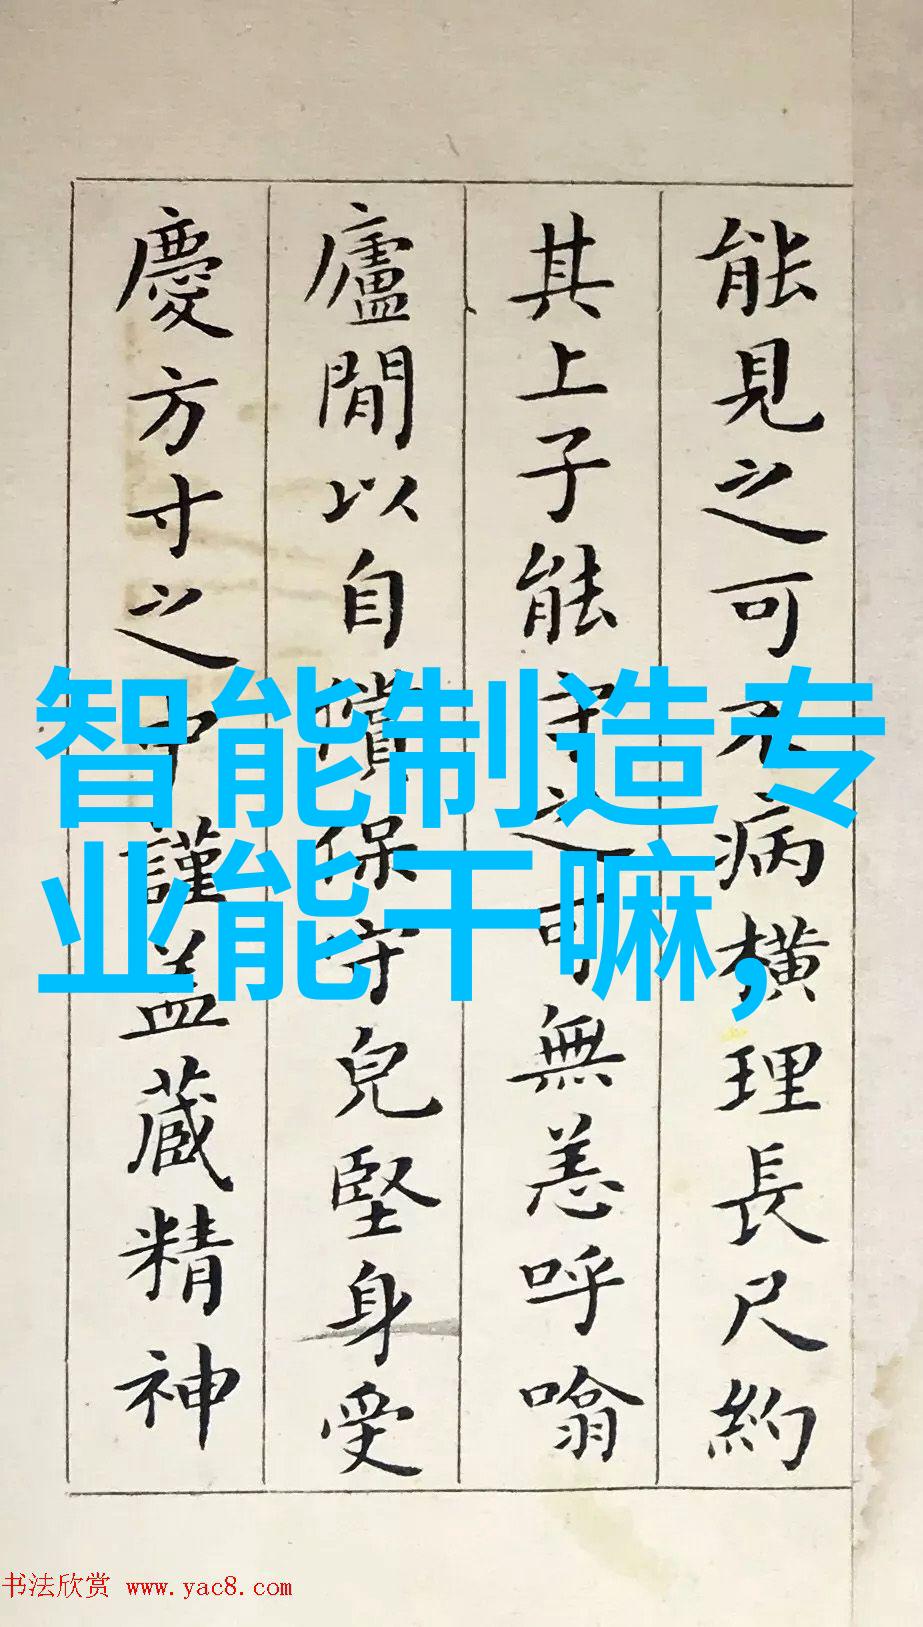 能見之可不病橫理長尺約
其上子能守之可無恙呼噏
廬閒以自償保守皃堅身受
慶方寸之中謹盖藏精神
智能制造专
业能干嘛,
书法欣赏 www.yac8.com